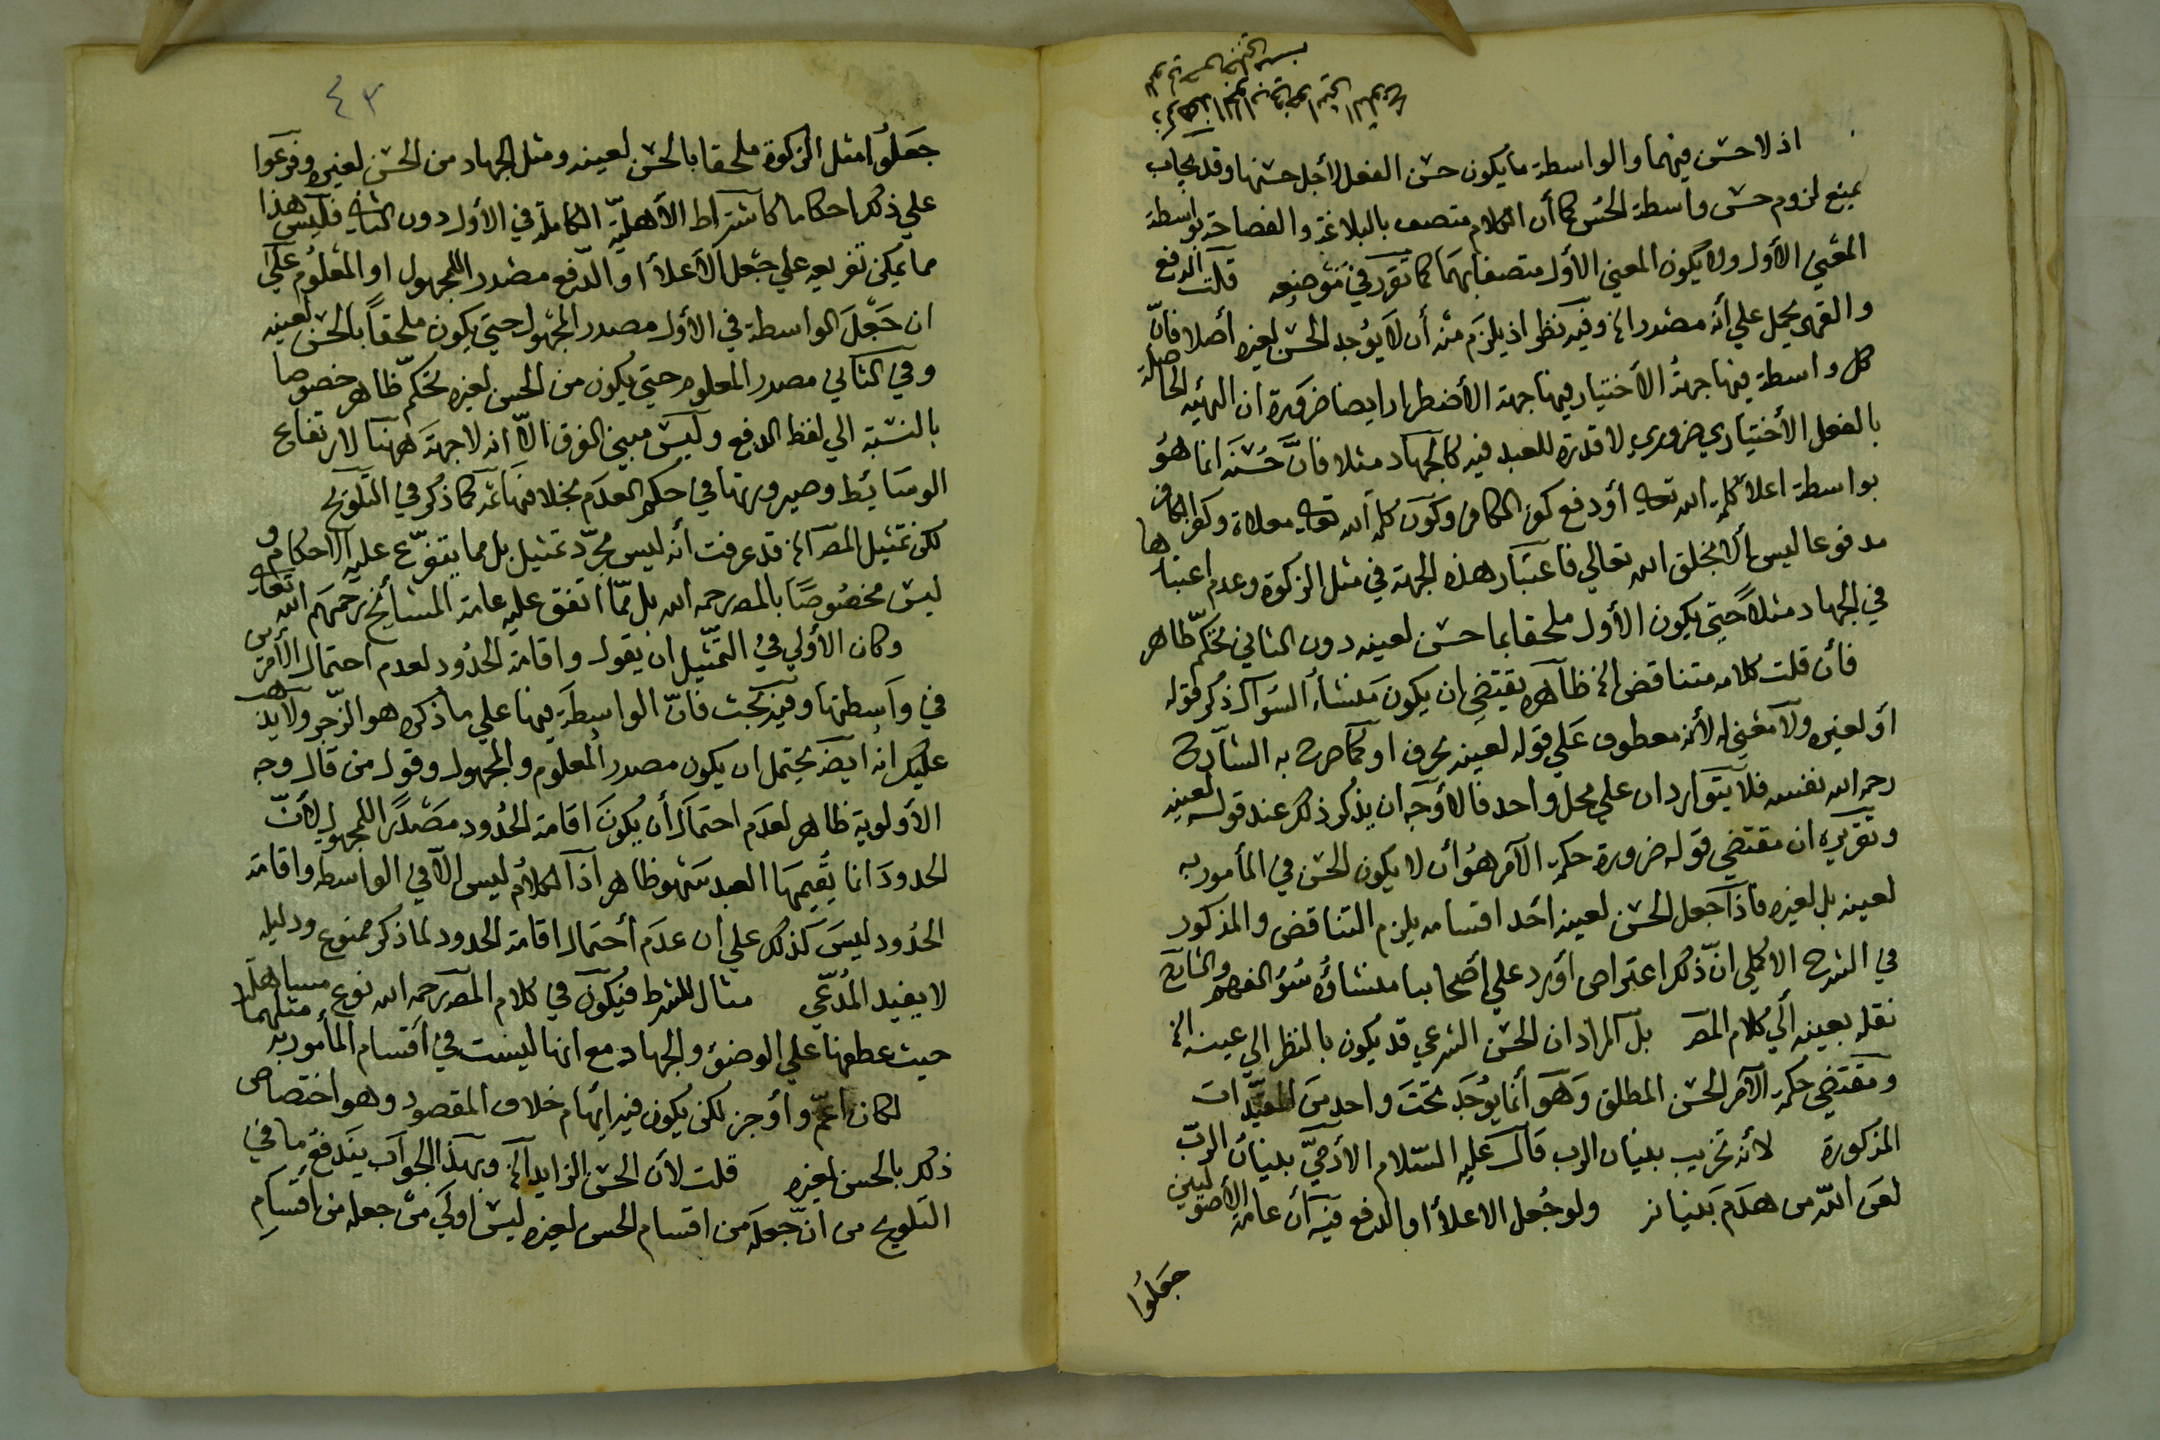 اذ لا حسن فيهما والواسطة ما يكون حسن الفعل لأجل حسنها وقد يجاب
بمنع لزوم حسن واسطة الحسن كما أن الكلام متصف بالبلاغة والفصاحة بواسطة
المعني الأول ولا يكون المعني الأول متصفا بهما كما تقرر في موضعه قلت الدفع
والقهر يحمل علي أنه مصدر الخ وفيه نظر اذ يلزم منه أن لا يوجد الحسن لغيره أصلا فانّ
كل واسطة فيها جهة الأختيار فيها جهة الأضطرار ايضا ضرورة ان الهيئة الحاصلة
بالفعل الأختياري ضروري لا قدرة للعبد فيه كالجهاد مثلا فانّ حسنه انما هو
بواسطة اعلاء كلمة الله تعالى أو دفع كفر الكافر وكون كلمة الله تعالى معلاة وكفر الكافر
مدفوعا ليس الا بخلق الله تعالي فاعتبار هذه الجهة في مثل الزكوة وعدم اعتبارها
في الجهاد مثلاً حتي يكون الأول ملحقا بما حسن لعينه دون الثاني تحكّم ظاهر
فأن قلت كلامه متناقض الخ ظاهره يقتضي ان يكون منشأ السؤال ذكر قوله
أو لغيره ولا معني له لأنه معطوف علي قوله لعينه بحرف او كما صرح به الشارح
رحمه الله نفسه فلا يتواردان علي محل واحد فالأوجه ان يذكر ذلك عند قوله لعينه
وتقريره ان مقتضي قوله ضرورة حكمة الآمر هو أن لا يكون الحسن في المأمور به
لعينه بل لغيره فاذا جعل الحسن لعينه احد اقسامه يلزم التناقض والمذكور
في الشرح الاكملي انّ ذلك اعتراض أورد علي أصحابنا منشاؤه سوء الفهم والشارح
نقله بعينه الي كلام المص بل المراد ان الحسن الشرعي قد يكون بالنظر الي عينه الخ
ومقتضي حكمة الآمر الحسن المطلق وهو أنما يوجد تحت واحد من المقيّدات
المذكورة لأنه تخريب بنيان الرب قال عليه السّلام الأدميّ بنيان الربّ
لعن اللّه من هدم بنيانه ولو جُعل الاعلاء او الدفع فيه أن عامة الأصوليين
جعلوا
٤٣
جعلوا مثل الزكوة ملحقا بالحسن لعينه ومثل الجهاد من الحسن لغيره وفرعوا
علي ذلك احكاما كاشتراط الأهليّة الكاملة في الأول دون الثاني فليس هذا
مما يمكن تفريعه علي جعل الأعلاء او الدّفع مصدرا للمجهول او المعلوم علي
ان جَعْلَ الواسطة في الأول مصدر المجهول حتي يكون ملحقاً بالحسن لعينه
وفي الثاني مصدر المعلوم حتي يكون من الحسن لغيره تحكّم ظاهر خصوصا
بالنسبة الي لفظ الدفع وليس مبني الفرق الاّ انه لا جهة ههنا لارتفاع
الوسائط وصيرورتها في حكم العدم بخلافها ثمه كما ذكر في التلويح
لكن تمثيل المص الخ قد عرفت أنه ليس مجرّد تمثيل بل مما يتفرّع عليه الأحكام و
ليس مخصُوصًا بالمص رحمه الله بل ممّا اتفق عليه عامة المشائخ رحمهم الله تعالى
وكان الأولي في التمثيل ان يقول واقامة الحدُود لعدم احتمال الأمرين
في واسطتها وفيه بحث فانّ الواسطة فيها علي ما ذكره هو الزّجر ولا يذهب
عليك انه ايضا يحتمل ان يكون مصدر المعلوم والمجهول وقول من قال وجه
الأولوية ظاهر لعدم احتمال أن يكونَ اقامة الحدُود مَصْدَرًا للمجهول لأنّ
الحدودَ انما يُقيمها العبد سهو ظاهر اذ الكلام ليس الا في الواسطه واقامة
الحدُود ليس كذلك علي ان عدم أحتمال اقامة الحدود لما ذكر ممنوع ودليله
لا يفيد المُدّعي مثال للشرط فيكون في كلام المص رحمه الله نوع مساهلة
حيث عطفها علي الوضوء والجهاد مع انها ليست في أقسام المأمور به مثلهما
لكان اعمّ وأوجز لكن يكون فيه ايهام خلاف المقصود وهو اختصاص
ذلك بالحسن لغيره قلت لأن الحسن الزايد الخ وبهذا الجواب يندفع ما في
التلويح من انّ جعله من اقسام الحسن لغيره ليس اولي من جعله من اقسام